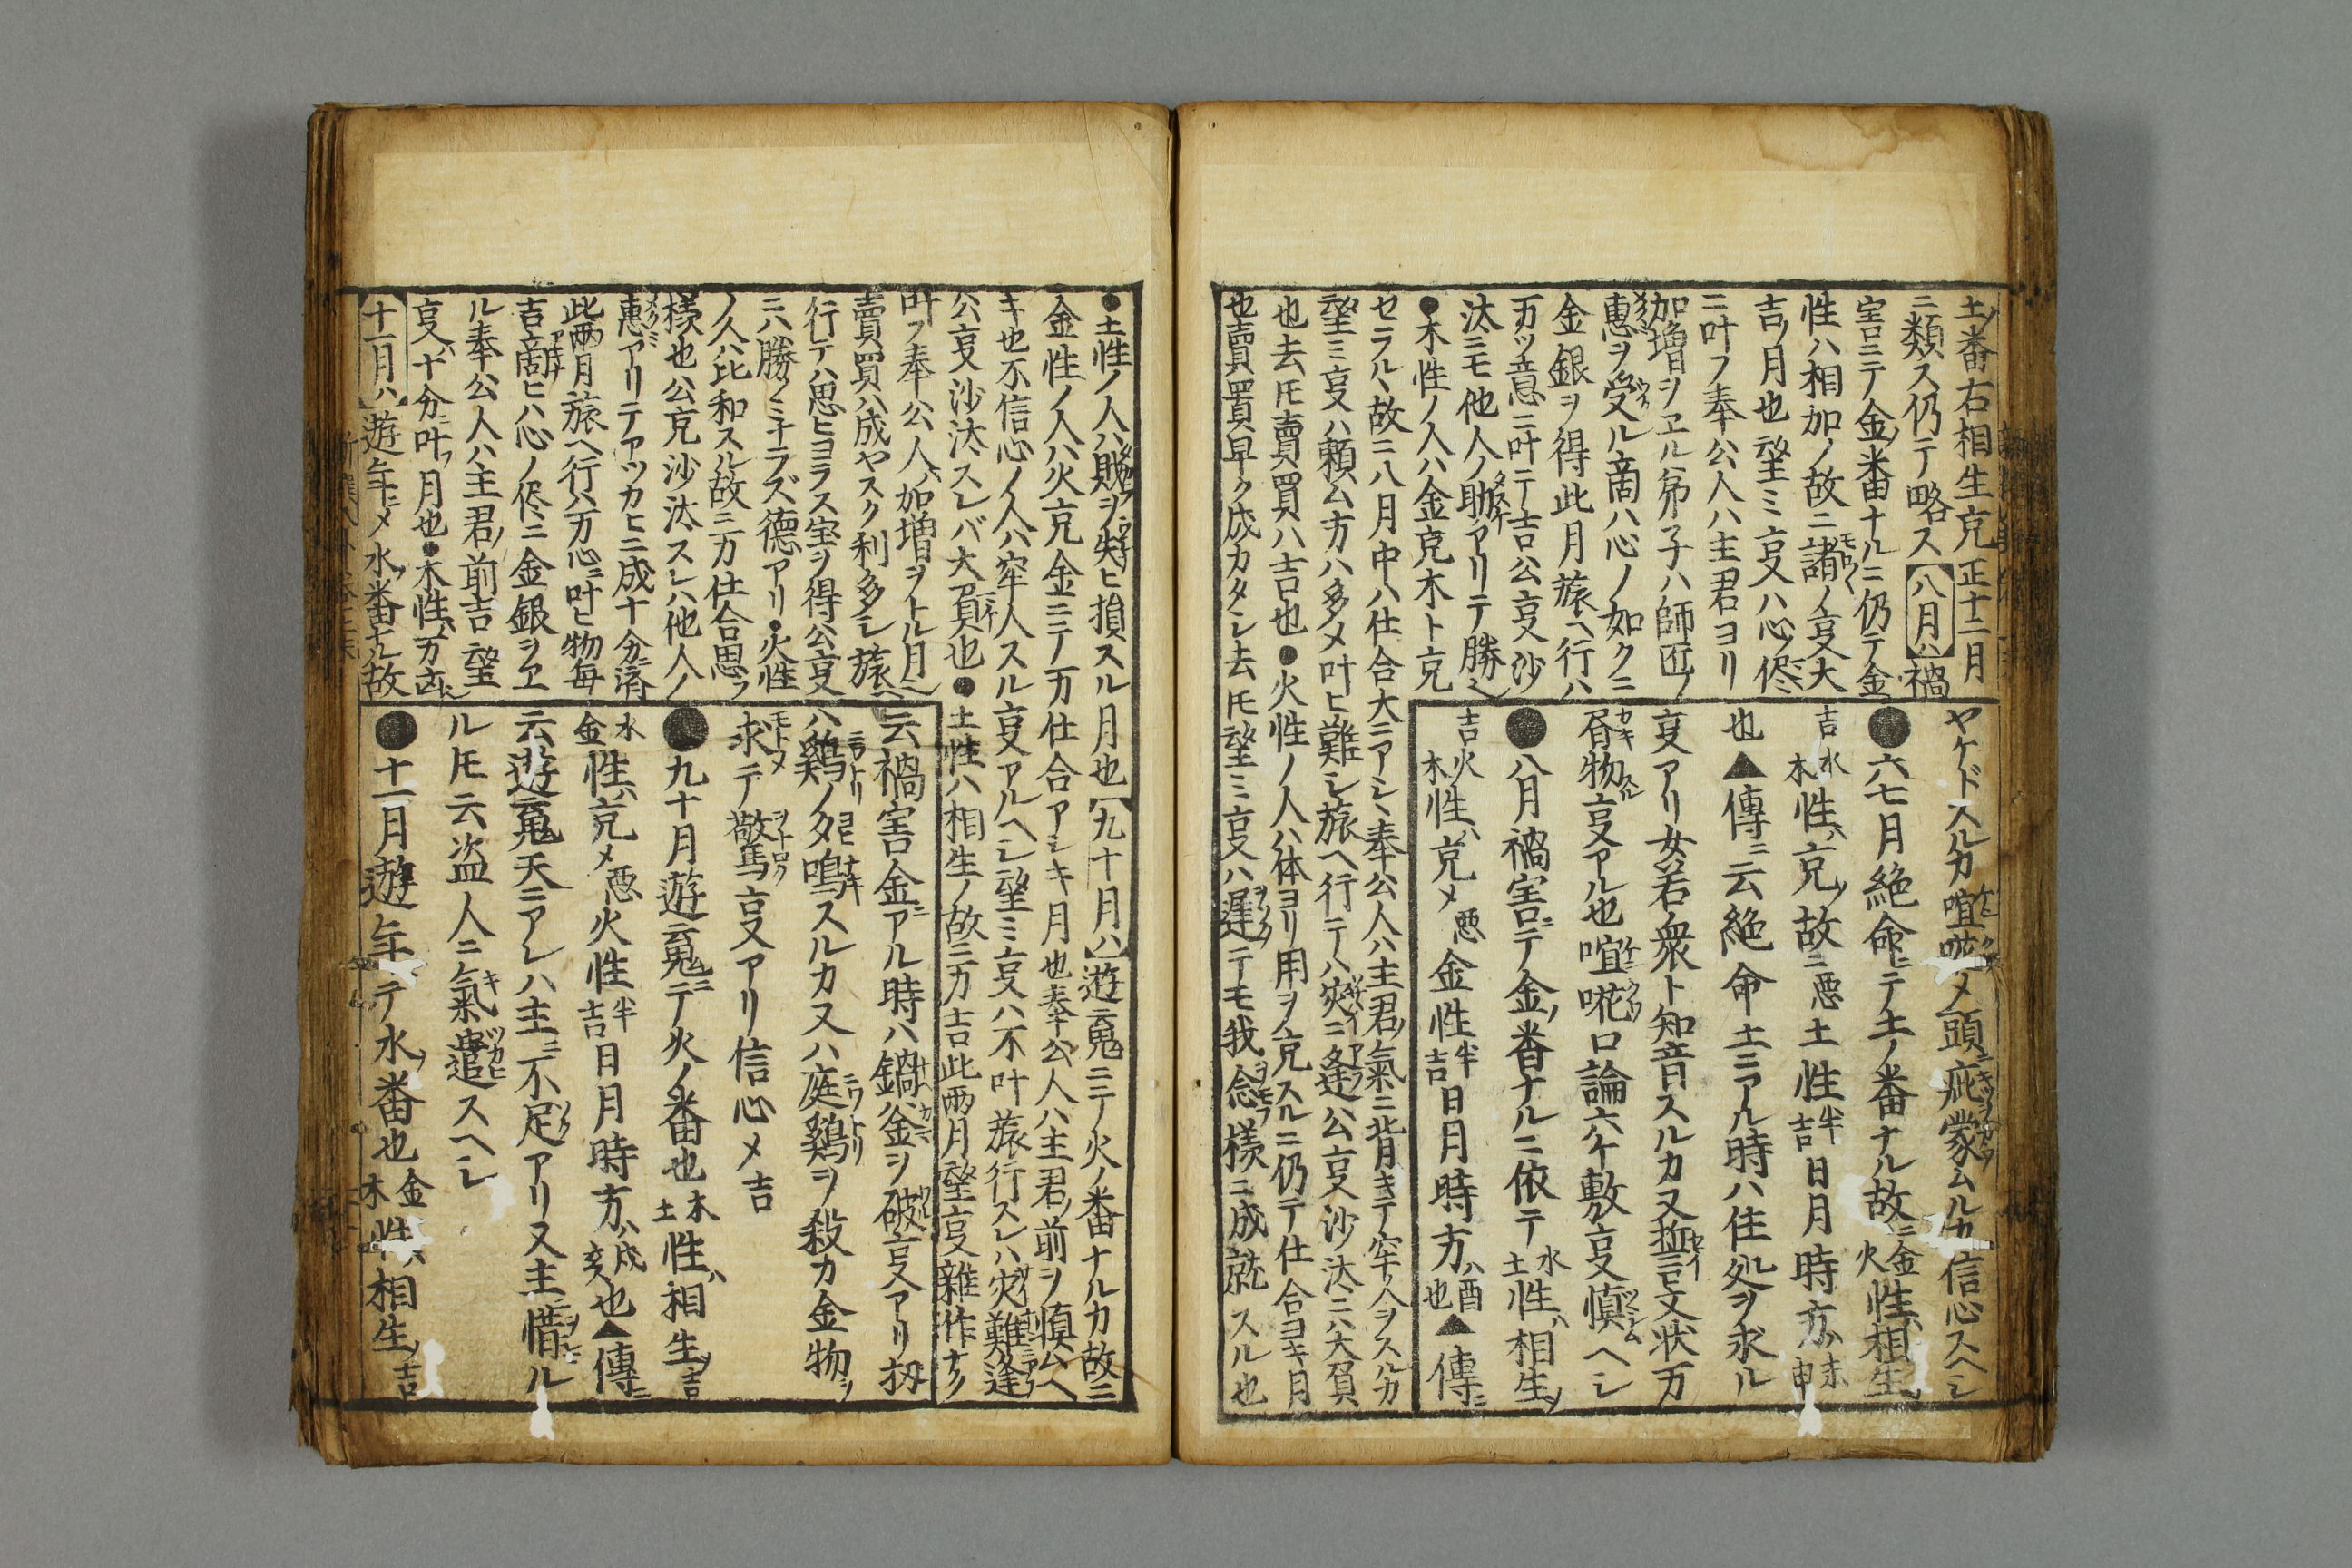 土ノ番右相生克正十二月
ニ類ス仍テ略ス【八月ハ】禍
害ニテ金ノ番ナルニ仍テ金
性ハ相加ノ故ニ諸ノ叓大
吉ノ月也望ミ叓ハ心ノ侭
ニ叶フ奉公人ハ主君ヨリ
加増ヲヱル弟子ハ師匠ノ
惠ヲ受ル商ハ心ノ如クニ
金銀ヲ得此月旅ヘ行ハ
万ツ意ニ叶テ吉公叓沙
汰ニモ他人ノ助アリテ勝ヘシ
●木性ノ人ハ金克木ト克
セラルヽ故ニ八月中ハ仕合大ニアシヽ奉公人ハ主君ノ氣ニ背キテ牢人ヲスルカ
望ミ叓ハ頼ム方ハ多メ叶ヒ難シ旅ヘ行テハ災ニ逢公叓沙汰ニハ大負
也去𪜈賣買ハ吉也●火性ノ人ハ体ヨリ用ヲ克スルニ仍テ仕合ヨキ月
也賣買早ク成カタシ去𪜈望ミ叓ハ遅テモ我念様ニ成就スル也
ヤケドスルカ喧𠵅メ頭ニ疵蒙ムルカ信心スヘシ
●六七月絶命ニテ土ノ番ナル故ニ金火性ハ相生ノ
吉水木性ハ克ノ故ニ悪土性半吉日月時方ハ未申
也▲傳ニ云絶命土ニアル時ハ住処ヲ求ル
叓アリ女若衆ト知音スルカ又
物叓アル也喧𠵅口論六ケ敷叓慎ヘシ
●八月禍害ニテ金ノ番ナルニ依テ水土性ハ相生ノ
吉火木性ハ克メ悪金性半吉日月時方ハ酉也▲傳ニ
●土性ノ人ハ賊ヲ失ヒ損スル月也【九十月ハ】遊䰟ニテ火ノ番ナルカ故ニ
金性ノ人ハ火克金ニテ万仕合アシキ月也奉公人ハ主君ノ前ヲ慎ムヘ
キ也不信心ノ人ハ牢人スル叓アルヘシ望ミ叓ハ不叶旅行スレハ災難ニ逢
公叓沙汰スレバ大負也●土性ハ相生ノ故ニ万吉此两月望叓雜作ナク
叶フ奉公人ハ加増ヲトル月也
賣買ハ成ヤスク利多シ旅ヘ
行テハ思ヒヨラス宝ヲ得公叓
ニハ勝ノミナラズ德アリ●火性
ノ人ハ比和スル故ニ万仕合思フ
様也公克沙汰スレハ他人ノ
惠アリテアツカヒニ成十分ニ済
此两月旅ヘ行ハ万心ニ叶ヒ物毎
吉商ヒハ心ノ侭ニ金銀ヲヱ
ル奉公人ハ主君ノ前吉望
叓ハ十分ニ叶フ月也●木性ハ万凶シ
【十一月ハ】遊年ニメ水ノ番ナル故
云禍害金ニアル時ハ鍋ハ金ヲ破叓アリ扨
ハ鷄ノ夕鳴スルカ又ハ庭鷄ヲ殺カ金物ヲ
求テ驚叓アリ信心メ吉
●九十月遊䰟ニテ火ノ番也木土性ハ相生ノ吉
水金性ハ克メ悪火性半吉日月時方ハ戌亥也▲傳ニ
云遊䰟天ニアレハ主ニ不足アリ又主ニ惜ル
ル𪜈云盗人ニ氣遣スヘシ
●十一月遊年ニテ水ノ番也金木性ハ相生ノ吉